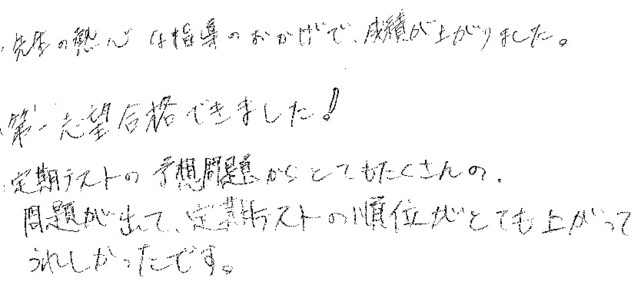 ・先生の熱心な指導のおかげで、成績が上がりました。
・第一志望合格できました!
・定期テストの予想問題からとてもたくさんの、
問題が出て、定期テストの順位がとても上がって
うれしかったです。